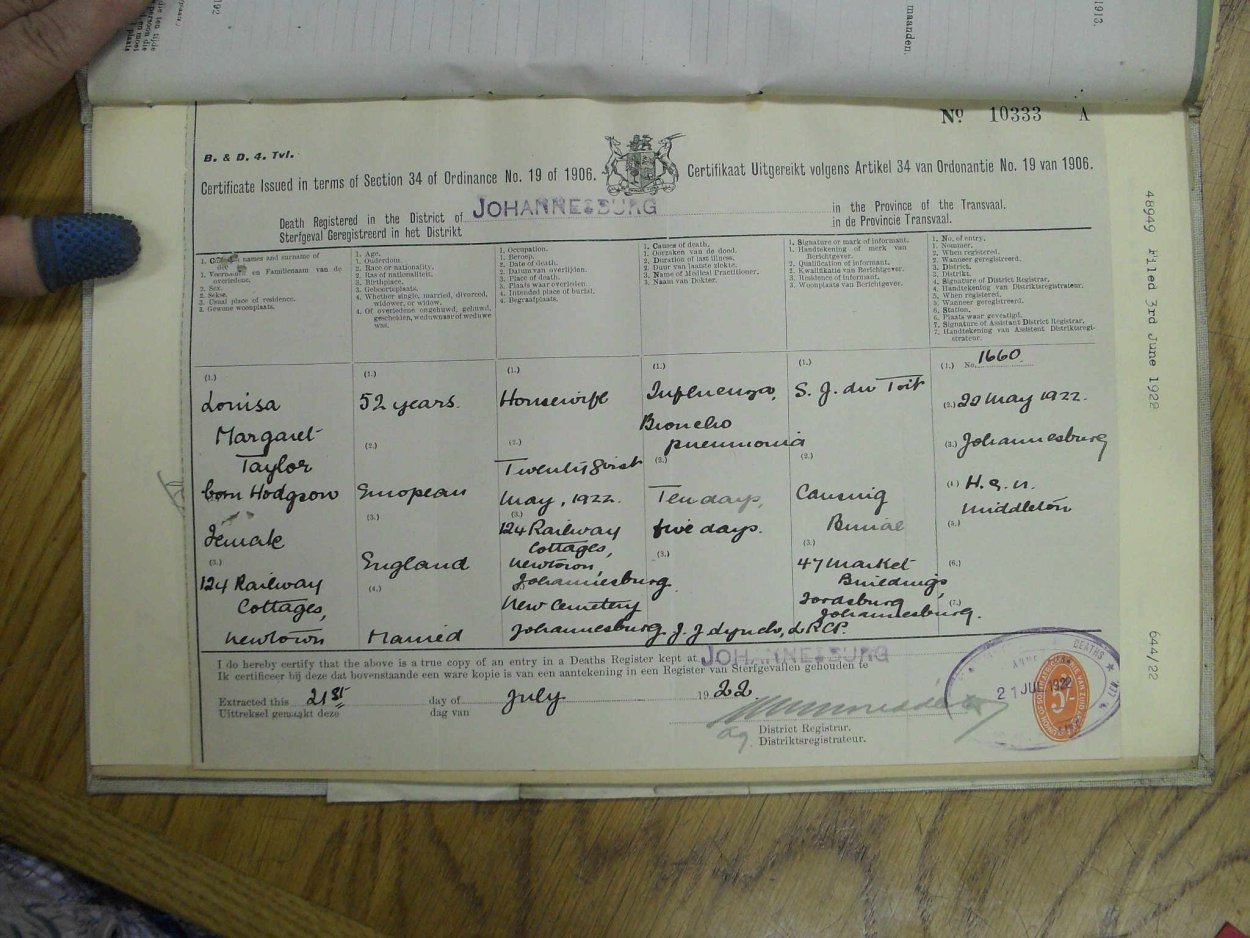 192
maanden.
1913.
Nº 10333 A
B. & D. 4. Tvl.
Certificate Issued in terms of Section 34 of Ordinance No. 19 of 1906.
Certifikaat Uitgereikt volgens Artikel 34 van Ordonantie No. 19 van 1906.
Death Registered in the District of JOHANNESBURG in the Province of the Transvaal.
Sterfgeval Geregistreerd in het Distrikt in de Provincie Transvaal.
1. names and surname of
1. Voornamen en Familienaam van de
overledene.
2. Sex.
2. Sekse.
3. Usual place of residence.
3. Gewone woonplaats.
1. Age.
1. Ouderdom.
2. Race or nationality.
2. Ras of nationaliteit.
3. Birthplace.
3. Geboorteplaats.
4. Whether single, married, divorced,
widower, or widow.
4. Of overledene ongehuwd, gehuwd,
gescheiden, weduwnaar of weduwe
was.
1. Occupation.
1. Beroep.
2. Date of death.
2. Datum van overlijden.
3. Place of death.
3. Plaats waar overleden.
4. Intended place of burial.
4. Begraafplaats.
1. Causes of death.
1. Oorzaken van de dood.
2. Duration of last illness.
2. Duur van laatste ziekte.
3. Name of Medical Practitioner.
3. Naam van Dokter.
1. Signature or mark of informant.
1. Handtekening of merk van
Berichtgever.
2. Qualification of informant.
2. Kwalifikatie van Berichtgever.
3. Residence of informant.
3. Woonplaats van Berichtgever.
1. No. of entry.
1. Nommer.
2. When registered.
2. Wanneer geregistreerd.
3. District.
3. Distrikt.
4. Signature of District Registrar.
4. Handtekening van Distriktsregistrateur.
5. When registered.
5. Wanneer geregistreerd.
6. Station.
6. Plaats waar gevestigd.
7. Signature of Assistant District Registrar.
7. Handtekening van Assistent Distriktsregi-
strateur.
(1.)
Louisa
Margaret
Taylor
born Hodgson
Female
(3.)
124 Railway
Cottages,
Newtown
(1.)
52 years.
(2.)
European
(3.)
England
(4.)
Married
(1.)
Housewife
(2.)
Twenty first
May, 1922.
(3.)
124 Railway
Cottages,
Newtown,
Johannesburg.
New Cemetery
Johannesburg
(1.)
Influenza,
Broncho
pneumonia
(2.)
Ten days,
five days.
(3.)
J. J. Lynch, LRCP.
(1.)
S. J. du Toit
(2.)
Causing
Burial
(3.)
47 Market
Buildings
Fordsburg
Johannesburg.
(1.) No. 1660
(2.) 22 May 1922.
(3.) Johannesburg
(4.) H. G. N.
Middleton
(5.)
(6.)
(7.)
I do hereby certify that the above is a true copy of an entry in a Deaths Register kept at JOHANNESBURG
Ik certificeer bij deze dat bovenstaande een ware kopie is van een aantekening in een Register van Sterfgevallen gehouden te
Extracted this 21st day of July 1922
Uittreksel gemaakt deze dag van
ag.
District Registrar.
Distriktsregistrateur.
DEATHS
21 JUL 1922
48949 Filed 3rd June 1922
644/22